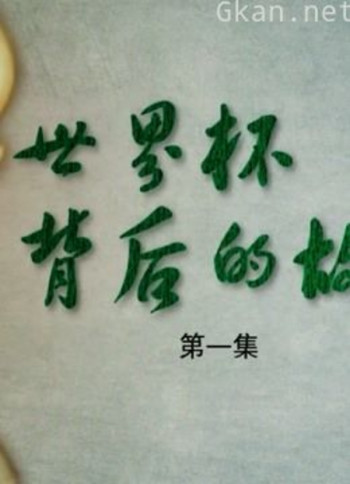 Gkan.net
世界杯
背后的故
第一集